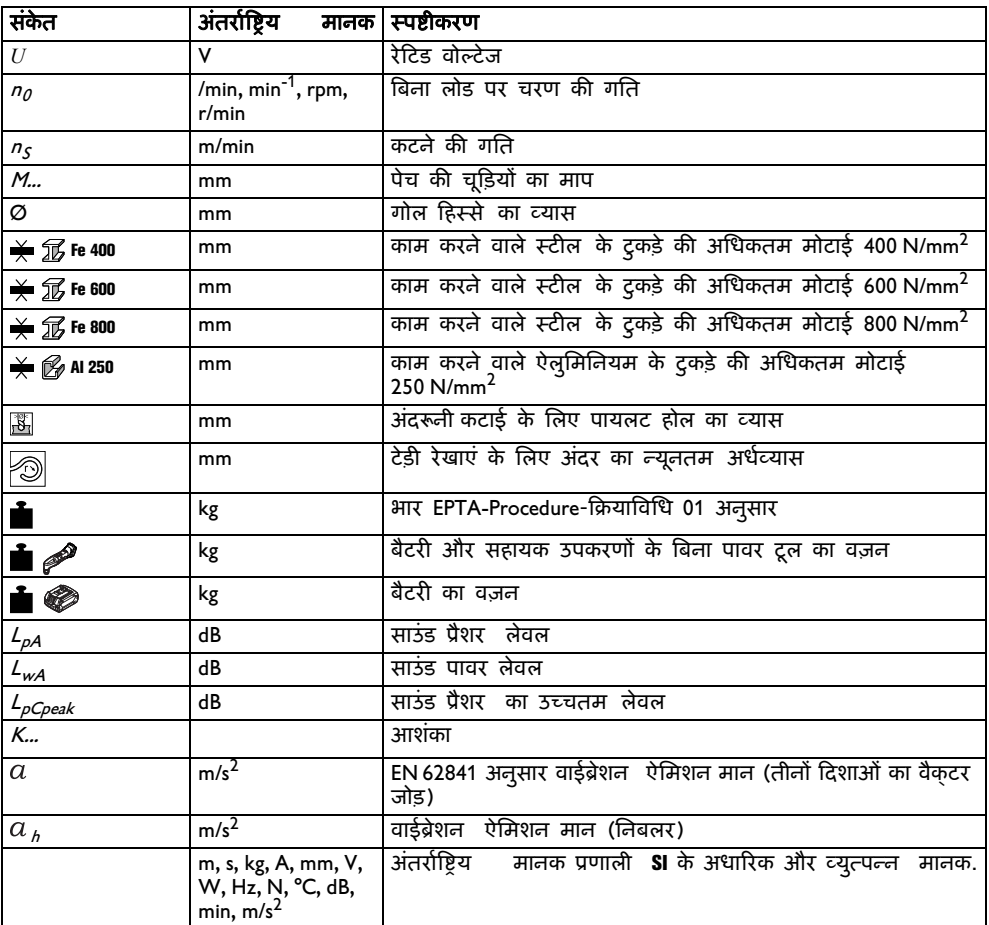 संकेत अंतर्राष्ट्रिय मानक स्पष्टीकरण
U V रेटिड वोल्टेज
n0 /min, min-1, rpm, बिना लोड पर चरण की गति
r/min
nS m/min कटने की गति
M... mm पेच की चूड़ियों का माप
Ø mm गोल हिस्से का व्यास
Fe 400 mm काम करने वाले स्टील के टुकड़े की अधिकतम मोटाई 400 N/mm2
Fe 600 mm काम करने वाले स्टील के टुकड़े की अधिकतम मोटाई 600 N/mm2
Fe 800 mm काम करने वाले स्टील के टुकड़े की अधिकतम मोटाई 800 N/mm2
Al 250 mm काम करने वाले ऐलुमिनियम के टुकड़े की अधिकतम मोटाई
250 N/mm2
mm अंदरूनी कटाई के लिए पायलट होल का व्यास
mm टेड़ी रेखाएं के लिए अंदर का न्यूनतम अर्धव्यास
kg भार EPTA-Procedure-क्रियाविधि 01 अनुसार
kg बैटरी और सहायक उपकरणों के बिना पावर टूल का वज़न
kg बैटरी का वज़न
LpA dB साउंड प्रैशर लेवल
LwA dB साउंड पावर लेवल
LpCpeak dB साउंड प्रैशर का उच्चतम लेवल
K... आशंका
a m/s2 EN 62841 अनुसार वाईब्रेशन ऐमिशन मान (तीनों दिशाओं का वैक्टर
जोड़)
a h m/s2 वाईब्रेशन ऐमिशन मान (निबलर)
m, s, kg, A, mm, V, अंतर्राष्ट्रिय मानक प्रणाली SI के अधारिक और व्युत्पन्न मानक.
W, Hz, N, °C, dB,
min, m/s2